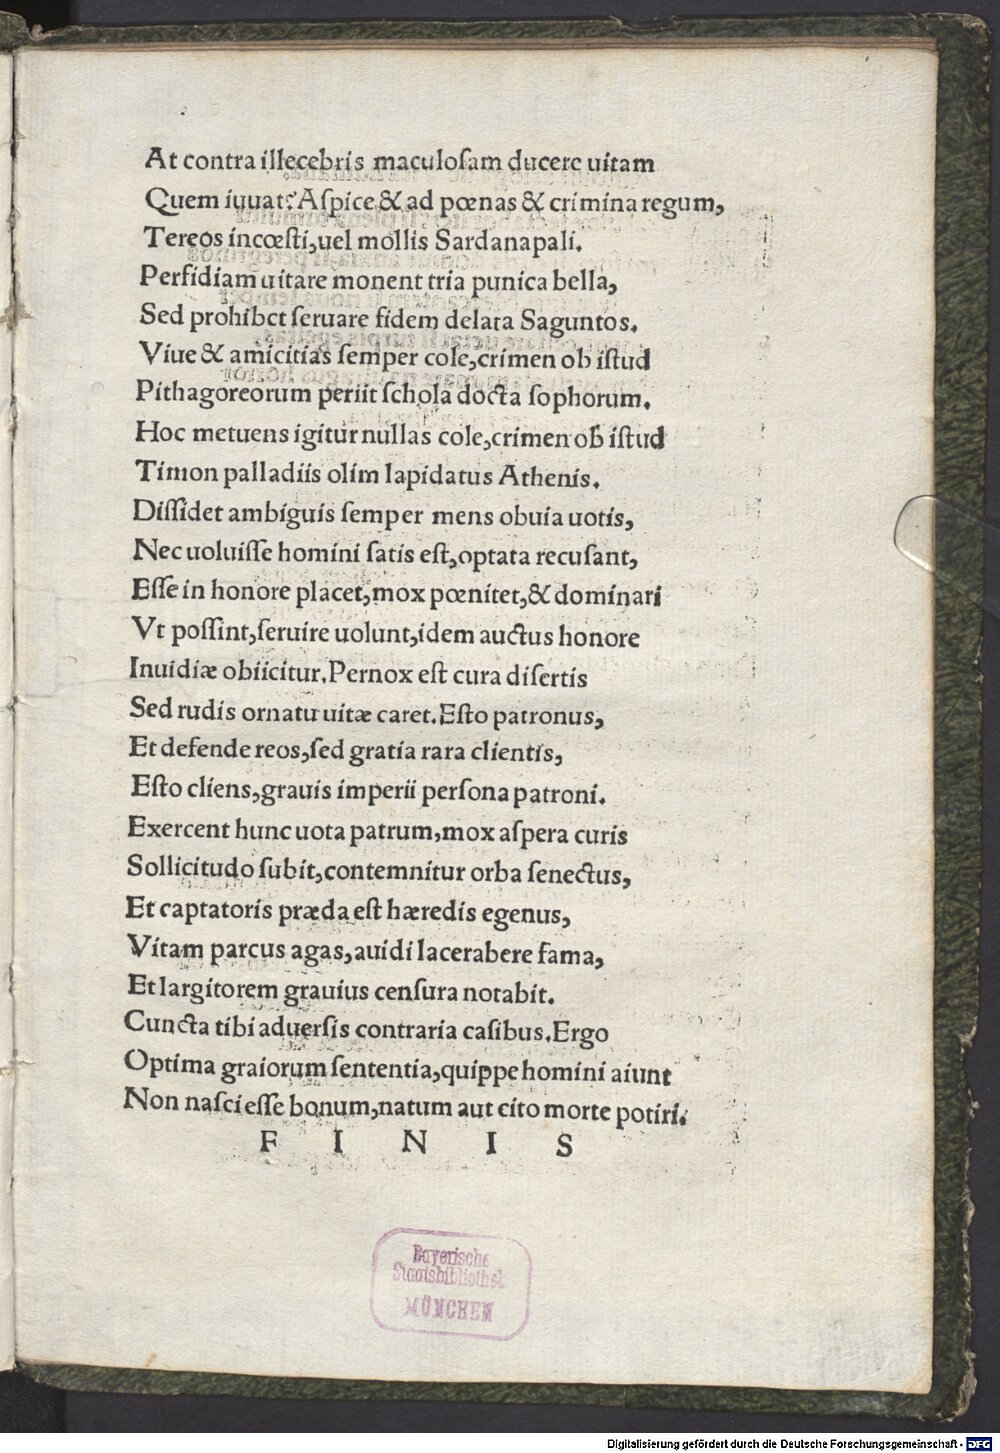 At contra illecebris maculoſam ducere uitam
Quem iuuat? Aſpice & ad pœnas & crimina regum,
Tereos incœſti, uel mollis Sardanapali.
Perfidiam uitare monent tria punica bella,
Sed prohibet ſeruare fidem delata Saguntos.
Viue & amicitias ſemper cole, crimen ob iſtud
Pithagoreorum periit ſchola docta ſophorum.
Hoc metuens igitur nullas cole, crimen ob iſtud
Timon palladiis olim lapidatus Athenis.
Diſſidet ambiguis ſemper mens obuia uotis,
Nec uoluiſſe homini ſatis eſt, optata recuſant,
Eſſe in honore placet, mox pœnitet, & dominari
Vt poſſint, ſeruire uolunt, idem auctus honore
Inuidiæ obiicitur. Pernox eſt cura diſertis
Sed rudis ornatu uitæ caret. Eſto patronus,
Et defende reos, ſed gratia rara clientis,
Eſto cliens, grauis imperii perſona patroni.
Exercent hunc uota patrum, mox aſpera curis
Sollicitudo ſubit, contemnitur orba ſenectus,
Et captatoris præda eſt hæredis egenus,
Vitam parcus agas, auidi lacerabere fama,
Et largitorem grauius cenſura notabit.
Cuncta tibi aduerſis contraria caſibus. Ergo
Optima graiorum ſententia, quippe homini aiunt
Non naſci eſſe bonum, natum aut cito morte potiri.
F I N I S
Bayerische
Staatsbibliothek
MÜNCHEN
Digitalisierung gefördert durch die Deutsche Forschungsgemeinschaft - DFG